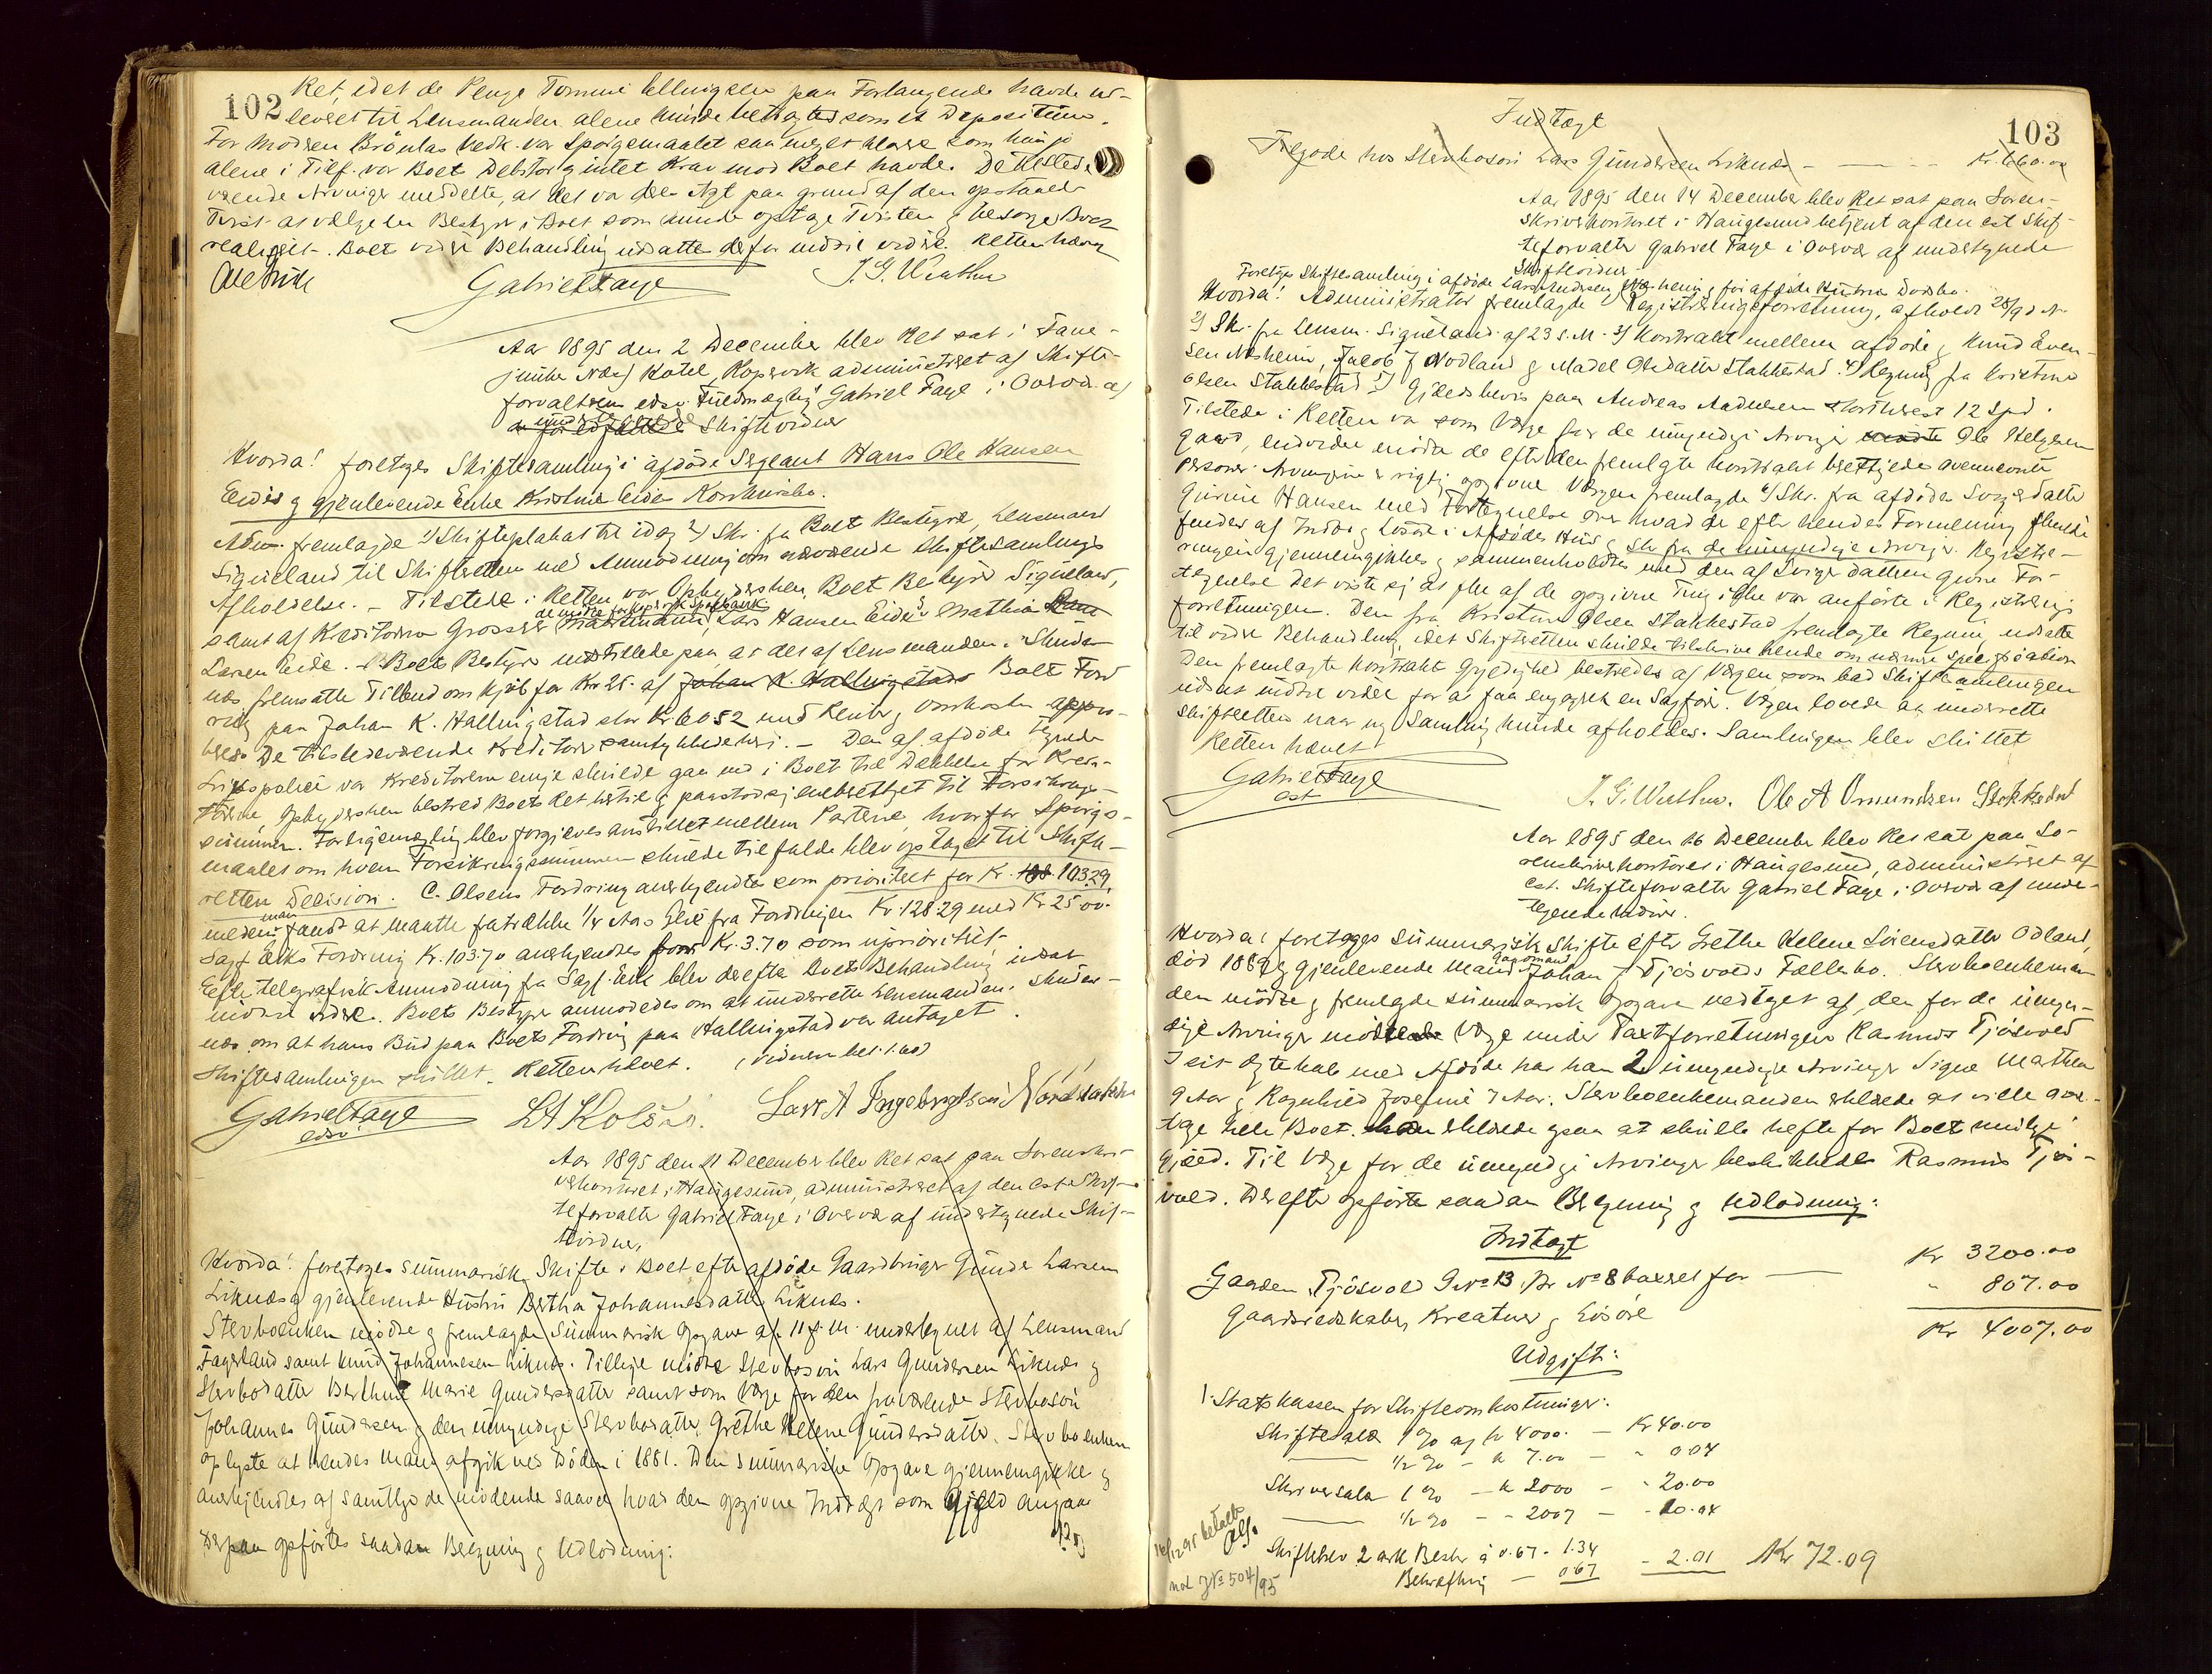 102
Ret, idet de Penge Tommi Ellingsen paa Forlangende havde ud-
leveret til Lensmanden alene kunde betragtes som et Depositum.
For Moderen Brönlas Vedk. var Spörgsmaalet saa meget klare som hun jo
alene i Tilf. var Boet Debitor g intet Krav mod Boet havde. De tilstede
værende Arvinger meddelte, at det var der Agt paa grund af den opstaaede
Tvist at vælge en Bestyrer i Boet som kunde optage Tvisten g besörge Boet
realiseret. Boet videre Behandling udsatte derfor indtil videre. Retten hævet
Gabriel Faye
Aar 1895 den 2 December blev Ret sat i Fane-
junker Næss Hotel, Kopervik administreret af Skifte-
forvalteren edsv. Fuldmægtig Gabriel Faye i Overvær af
Skiftevidner
Hvorda! foretoges Skiftesamling i afdöde Sergeant Hans Ole Hansen
Eides g gjenlevende Enke Kristine Eides Konkursbo.
Adm. fremlagde 1) Skifteplakat til idag 2) Skr. fra Boets Bestyrer, Lensmand
Signeland til Skifteretten med Anmodning om nærværende Skiftesamlings
Afholdelse. - Tilstede i Retten var Opbydersken, Boets Bestyrer Signeland,
samt af Kreditorerne Grosserer Lars Hansen Eide g Mathias
Larsen Eide. Boets Bestyrer indstillede paa at det af Lensmanden i Skude-
næs fremsatte Tilbud om Kjöb for Kr 25. af Johan K. Hallingstads Boets Ford
ring paa Johan K. Hallingstad stor Kr 60 52 med Renter g Omkostn. appro-
beres. De tilstedeværende Kreditorer samtykkede heri. - Den af afdöde tegnede
Livspolice var Kreditorerne enige skulde gaa ind i Boet til Dækkelse for Kredi-
torerne. Opbydersken bestred Boets Ret hertil g paastod sig eneberettiget til Forsikrings-
summen. Forligsmægling blev forgjæves anstillet mellem Parterne, hvorfor Spörgs-
maalet om hvem Forsikringssummen skulde tilfalde blev optaget til Skifte-
rettens Decision. C. Olsens Fordring anerkjendtes som prioritert for Kr. 103.29,
man
fandt at maatte fratrække 1/2 Aars Leie fra Fordringen Kr 128.29 med Kr 25.00.
Sagf. Eeks Fordring Kr. 103.70 anerkjendtes Kr. 3.70 som uprioritet.
Efter telegrafisk Anmodning fra Sagf. Eek blev derefter Boets Behandling udsat
indtil videre. Boets Bestyrer anmodedes om at underrette Lensmanden i Skudes-
næs om at hans Bud paa Boets Fordring paa Hallingstad var antaget.
Skiftesamlingen sluttet. Retten hævet. (vidnerne bet. 1.60)
Gabriel Faye
edsv.
Lars A Ingebrigtsen
Aar 1895 den 11 December blev Ret sat paa Sorenskri-
verkontoret i Haugesund, administreret af den cst. Skif-
teforvalter Gabriel Faye i Overvær af undertegnede Skif-
tevidner,
Hvorda! foretoges summarisk Skifte i Boet efter afdöde Gaardbruger Gunder Larsen
Liknæs g gjenlevende Hustru Bertha Johannesdatter Liknæs.
Stervboenken mödte g fremlagde Summarisk Opgave af 11 f. M. undertegnet af Lensmand
Fagerland samt Knud Johannesen Liknæs. Tillige mödte Stervbosön Lars Gundersen Liknæs g
Stervbodatter Berthe Marie Gundersdatter samt som Værge for den fraværende Stervbosön
Johannes Gundersen g den umyndige Stervbodatter Grethe Helene Gundersdatter. Stervboenken
oplyste at hendes Mand afgik ved Döden i 1881. Den summariske Opgave gjennemgikkes g
anerkjendtes af samtlige de mödende saavel hvad den opgivne Indtægt som Gjæld angaar
Derpaa opförtes saadan Beregning g Udlodning:
103
Indtægt
Tilgode hos Stervbosön Lars Gundersen Liknæs - Kr. 660.00
Aar 1895 den 14 December blev Ret sat paa Soren-
skriverkontoret i Haugesund betjent af den cst Skif-
teforvalter Gabriel Faye i Overvær af undertegnede
Skiftevidner
Foretoges Skiftesamling i afdöde Lars Andersen Næsheim g för afdöde Hustrus Dödsbo.
Hvorda! Administrator fremlagde 1) Registreringsforretning, afholdt 28/9 d. A.
2) Skr. fra Lensm. Signeland af 23 s. M. 3) Kontrakt mellem afdöde g Knud Even-
sen Næsheim, Jacob J Nodland g Madel Olsdatter Stakkestad. 4) Regning fra Kristine
Olsen Stakkestad 5) Gjældsbevis paa Andreas Aadnesen 12 Spd.
Tilstede i Retten var som Værge for de umyndige Arvinger Ole Helgesen
gaard, endvidere mödte de efter den fremlagte Kontrakt berettigede ovennævnte
Personer. Arvingerne er rigtig opgivne. Værgen fremlagde 6) Skr. fra afdödes Svigerdatter
Gurine Hansen med Fortegnelse over hvad der efter hendes Formening skulde
findes af Indbo g Lösöre i Afdödes Hus g Skr. fra de umyndige Arvinger. Registre-
ringen gjennemgikkes g sammenholdtes med den af Svigerdatteren givne For-
tegnelse det viste sig at flere af de opgivne Ting ikke var anförte i Registrerings
forretningen. Den fra Kristine Olsen Stakkestad fremlagte Regning udsatte
til videre Behandling, idet Skifteretten skulde tilskrive hende om nærmere specifikation
Den fremlagte Kontrakts Gyldighed bestredes af Værgen som bad Skiftesamlingen
udsat indtil videre for at faa engageret en Sagförer. Værgen lovede at underrette
Skifteretten naar ny Samling kunde afholdes. Samlingen blev sluttet
Retten hævet
Gabriel Faye
cst
Ole A Omundsen Stakkestad
Aar 1895 den 16 December blev Ret sat paa So-
renskriverkontoret i Haugesund, administreret af
cst. Skifteforvalter Gabriel Faye i Overvær af under-
tegnede Vidner.
Hvorda! foretoges summarisk Skifte efter Grethe Helene Sörensdatter Odland,
död 1889 g gjenlevende Mand Gaardmand Johan J Tjösvolds Fællesbo. Stervboenkeman
den mödte g fremlagde summarisk Opgave vedtaget af den for de umyn-
dige Arvinger mödende Værge under Taxtforretningen Rasmus Tjösvold
I sit Ægteskab med Afdöde har han 2 umyndige Arvinger Signe Marthea
9 Aar g Ragnhild Josefine 7 Aar. Stervboenkemanden erklærede at ville over-
tage hele Boet. erklærede ogsaa at skulle hefte for Boet mulige
Gjæld. Til Værge for de umyndige Arvinger beskikkedes Rasmus Tjös-
vold. Derefter opförtes saadan Beregning g Udlodning:
Indtægt
Gaarden Tjösvold G. No 13, Br. No 8 taxeret for - Kr 3200.00
Gaardsredskaber, Kreaturer g Lösöre " 807.00
Kr 4007.00
Udgift:
1. Statskassen for Skifteomkostninger:
Skiftesalær 1 % af Kr 4000. - Kr 40.00
1/2 % - Kr 7.00 - " 0.04
Skriversalær 1 % - Kr 2000 - - 20.00
1/2 % - - 2007 - - 10.04
Skiftebrev 2 ark Beskr. à 0.67 - 1.34
Bekræftning - 0.67 - 2.01 Kr 72.09
16/12 95 betalt
not J No 504/95